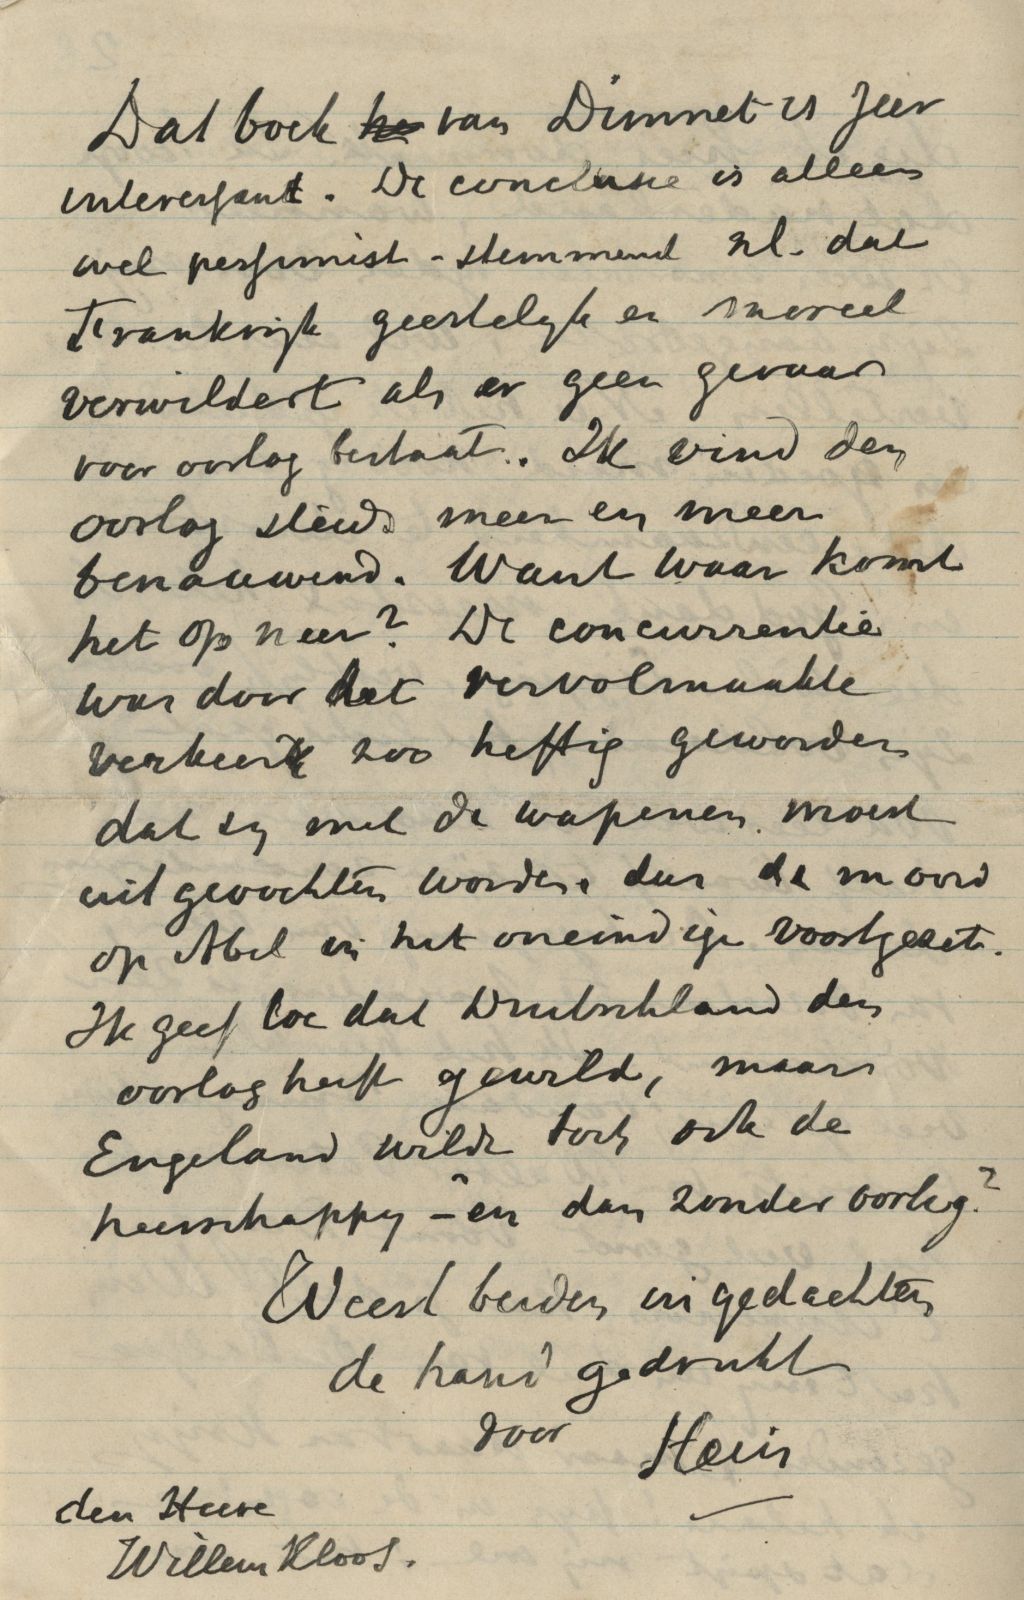 Dat boek van Dimnet is zeer
interessant. De conclusie is alleen
wel pessimist-stemmend nl. dat
Frankrijk geestelijk en moreel
verwildert als er geen gevaar
voor oorlog bestaat. Ik vind den
oorlog steeds meer en meer
benauwend. Want waar komt
het op neer? De concurrentie
was door het vervolmaakte
verkeer zoo heftig geworden
dat zy met de wapenen moest
uitgevochten worden, dus de moord
op Abel in het oneindige voortgezet.
Ik geef toe dat Duitschland den
oorlog heeft gewild, maar
Engeland wilde toch ook de
heerschappy – en dan zonder oorlog?
Weest beiden in gedachten
de hand gedrukt
door Hein
den Heere
Willem Kloos.